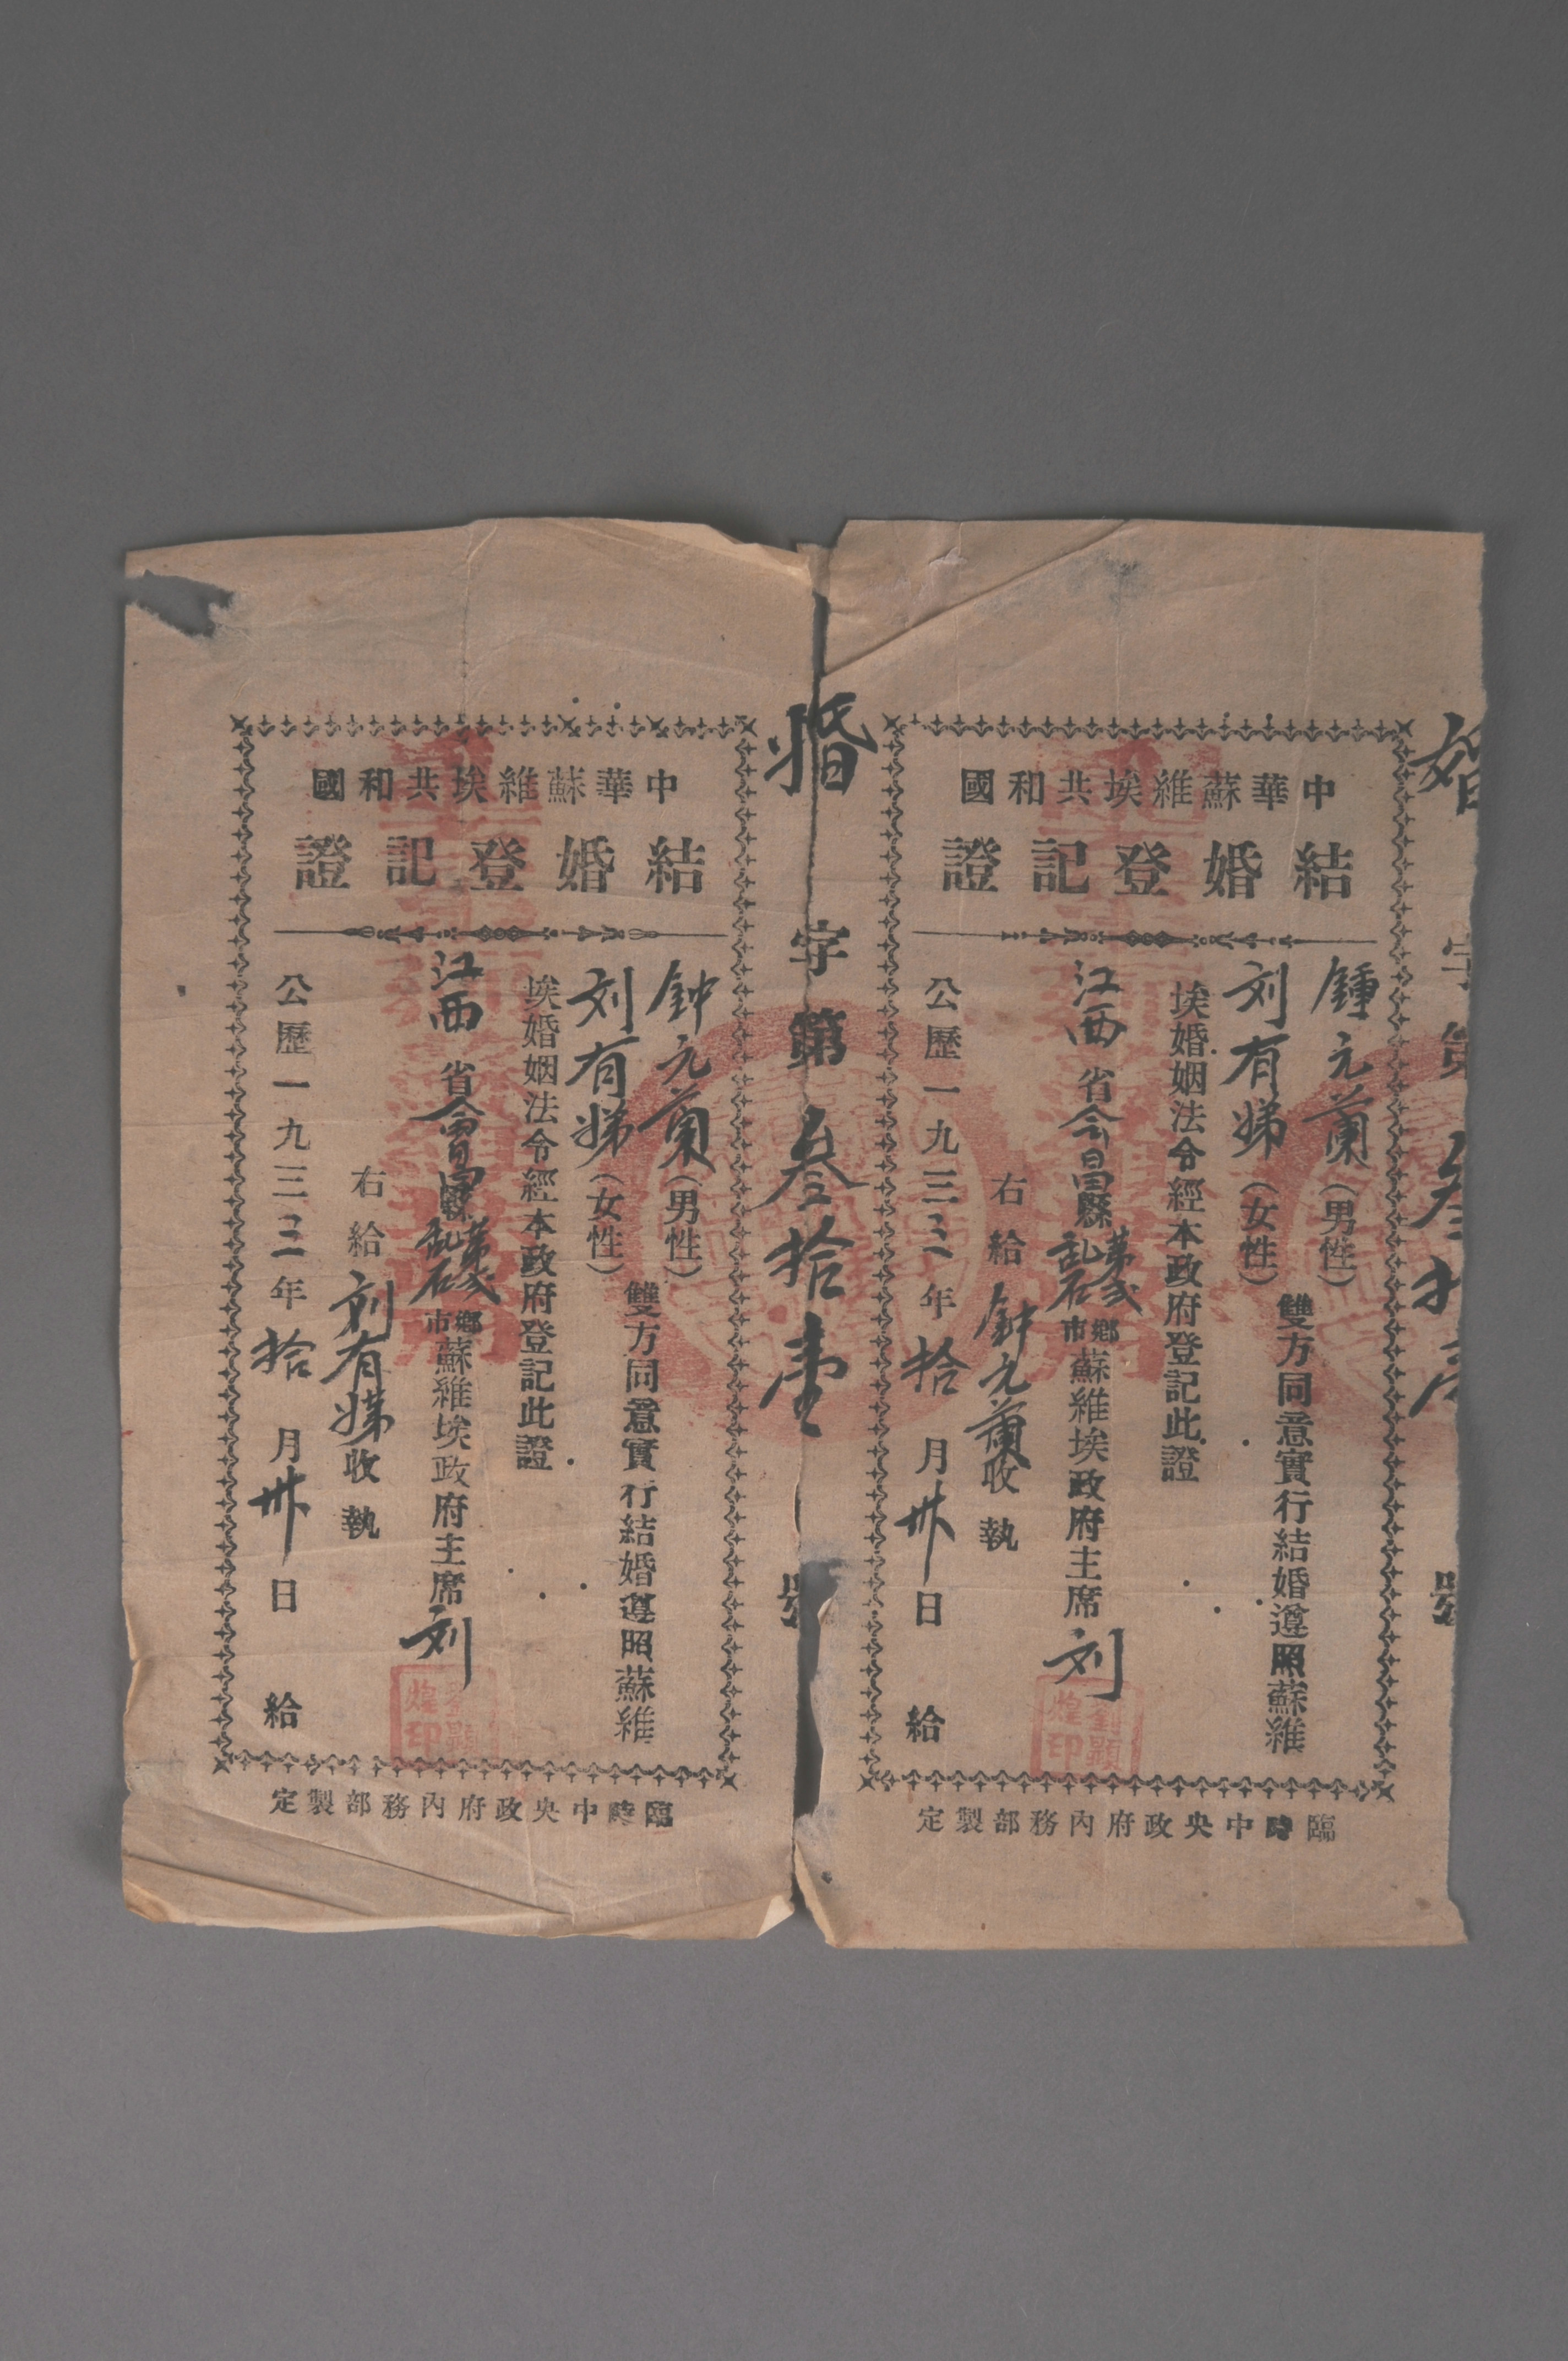 婚字第叁拾壹
中華蘇維埃共和國
結婚登記證
鍾元蘭（男性）
刘有娣（女性）
雙方同意實行結婚遵照蘇維
埃婚姻法令經本政府登記此證
江西省会昌縣
鄉市蘇維埃政府主席刘
劉顯煌印
右給鈡元蘭收執
公歷一九三二年拾月卅日給
臨時中央政府內務部製定
婚字第叁拾壹號
中華蘇維埃共和國
結婚登記證
鈡元蘭（男性）
刘有娣（女性）
雙方同意實行結婚遵照蘇維
埃婚姻法令經本政府登記此證
江西省會昌縣
鄉市蘇維埃政府主席刘
劉顯煌印
右給刘有娣收執
公歷一九三二年拾月卅日給
臨時中央政府內務部製定